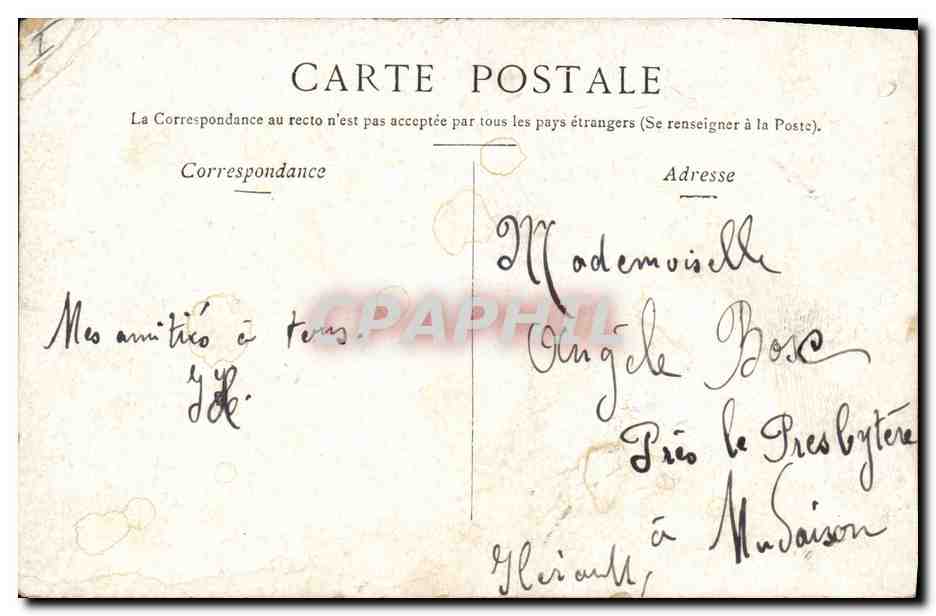 I
CARTE POSTALE
La Correspondance au recto n'est pas acceptée par tous les pays étrangers (Se renseigner à la Poste).
Correspondance
Mes amitiés à tous.
Adresse
Mademoiselle
Angèle Bosc
Près le Presbytère
à Mudaison
Hérault,
CPAPHIL